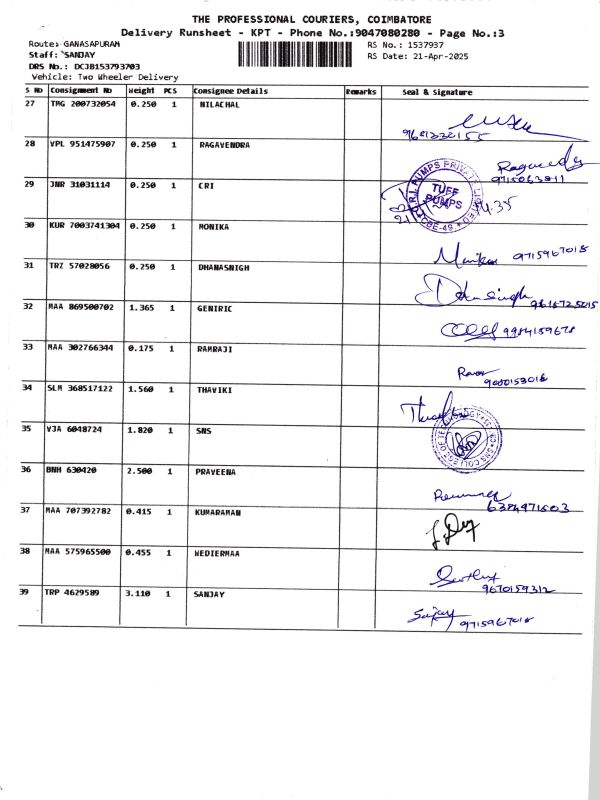 THE PROFESSIONAL COURIERS, COIMBATORE
Delivery Runsheet - KPT - Phone No.:9047080280 - Page No.:3
Route: GANASAPURAM
RS No.: 1537937
Staff: SANJAY
RS Date: 21-Apr-2025
DRS No.: DCJB153793703
Vehicle: Two Wheeler Delivery
S No Consignment No Weight PCS Consignee Details Remarks Seal & Signature
27 TMG 200732054 0.250 1 NILACHAL
28 VPL 951475907 0.250 1 RAGAVENDRA
29 JNR 31031114 0.250 1 CRI
TUFF PUMPS
30 KUR 7003741304 0.250 1 MONIKA
9715967018
31 TRZ 57028056 0.250 1 DHANASNIGH
32 MAA 869500702 1.365 1 GENIRIC
9984159678
33 MAA 302766344 0.175 1 RAMRAJI
9080153018
34 SLM 368517122 1.560 1 THAVIKI
35 VJA 6048724 1.820 1 SNS
36 BNH 630420 2.500 1 PRAVEENA
6384971503
37 MAA 707392782 0.415 1 KUMARAMAN
38 MAA 575965500 0.455 1 WEDIERMAA
9670159312
39 TRP 4629589 3.110 1 SANJAY
Sanjay 9715967018